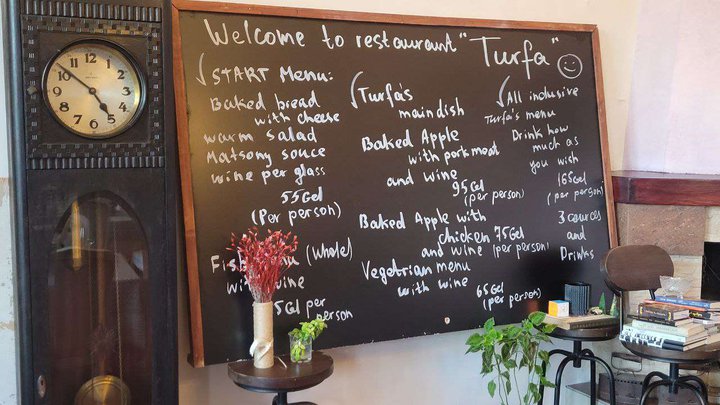 Welcome to restaurant "Turfa"
START Menu:
Baked bread
with cheese
warm salad
Matsony souce
wine per glass
55Gel
(Per person)
(whole)
wine
Gel per
person
Turfa's
main dish
Baked Apple
with pork meat
and wine
95Gel
(per person)
Baked Apple with
chicken 75Gel
and wine (per person)
Vegetrian menu
with wine
65Gel
(per person)
All inclusive
Turfa's menu
Drink how
much as
you wish
165Gel
(per person)
3 cources
and
Drinks